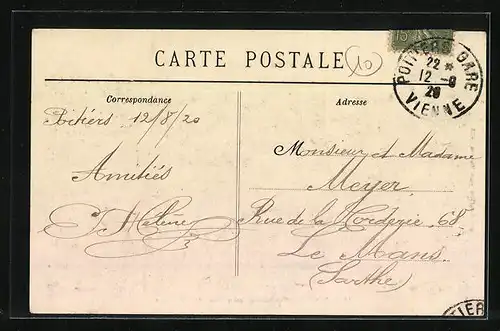 15
CARTE POSTALE
10
POITIERS GARE
22 *
12 - 8
20
VIENNE
Correspondance
Adresse
Poitiers 12/8/20
Monsieur et Madame
Amitiés
Meyer
Rue de la Corderie 68
Le Mans
(Sarthe)